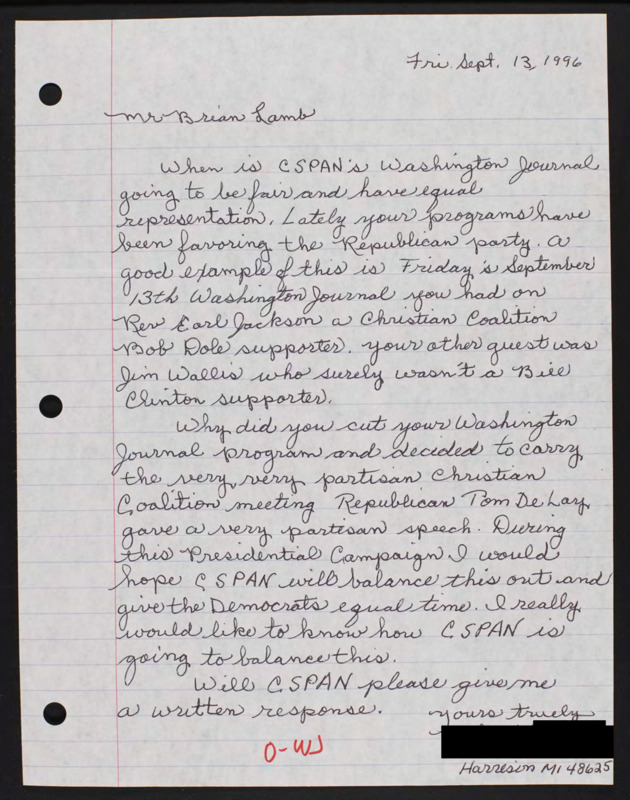 Fri. Sept. 13, 1996
Mr Brian Lamb
When is CSPAN's Washington Journal
going to be fair and have equal
representation. Lately your programs have
been favoring the Republican party. A
good example of this is Friday's September
13th Washington Journal you had on
Rev Earl Jackson a Christian Coalition
Bob Dole supporter. Your other guest was
Jim Wallis who surely wasn't a Bill
Clinton supporter.
Why did you cut your Washington
Journal program and decided to carry
the very, very partisan Christian
Coalition meeting Republican Tom De Lay
gave a very partisan speech. During
this Presidential Campaign I would
hope CSPAN will balance this out and
give the Democrats equal time. I really
would like to know how CSPAN is
going to balance this.
Will CSPAN please give me
a written response.
Yours truely
O-WJ
Harrison MI 48625